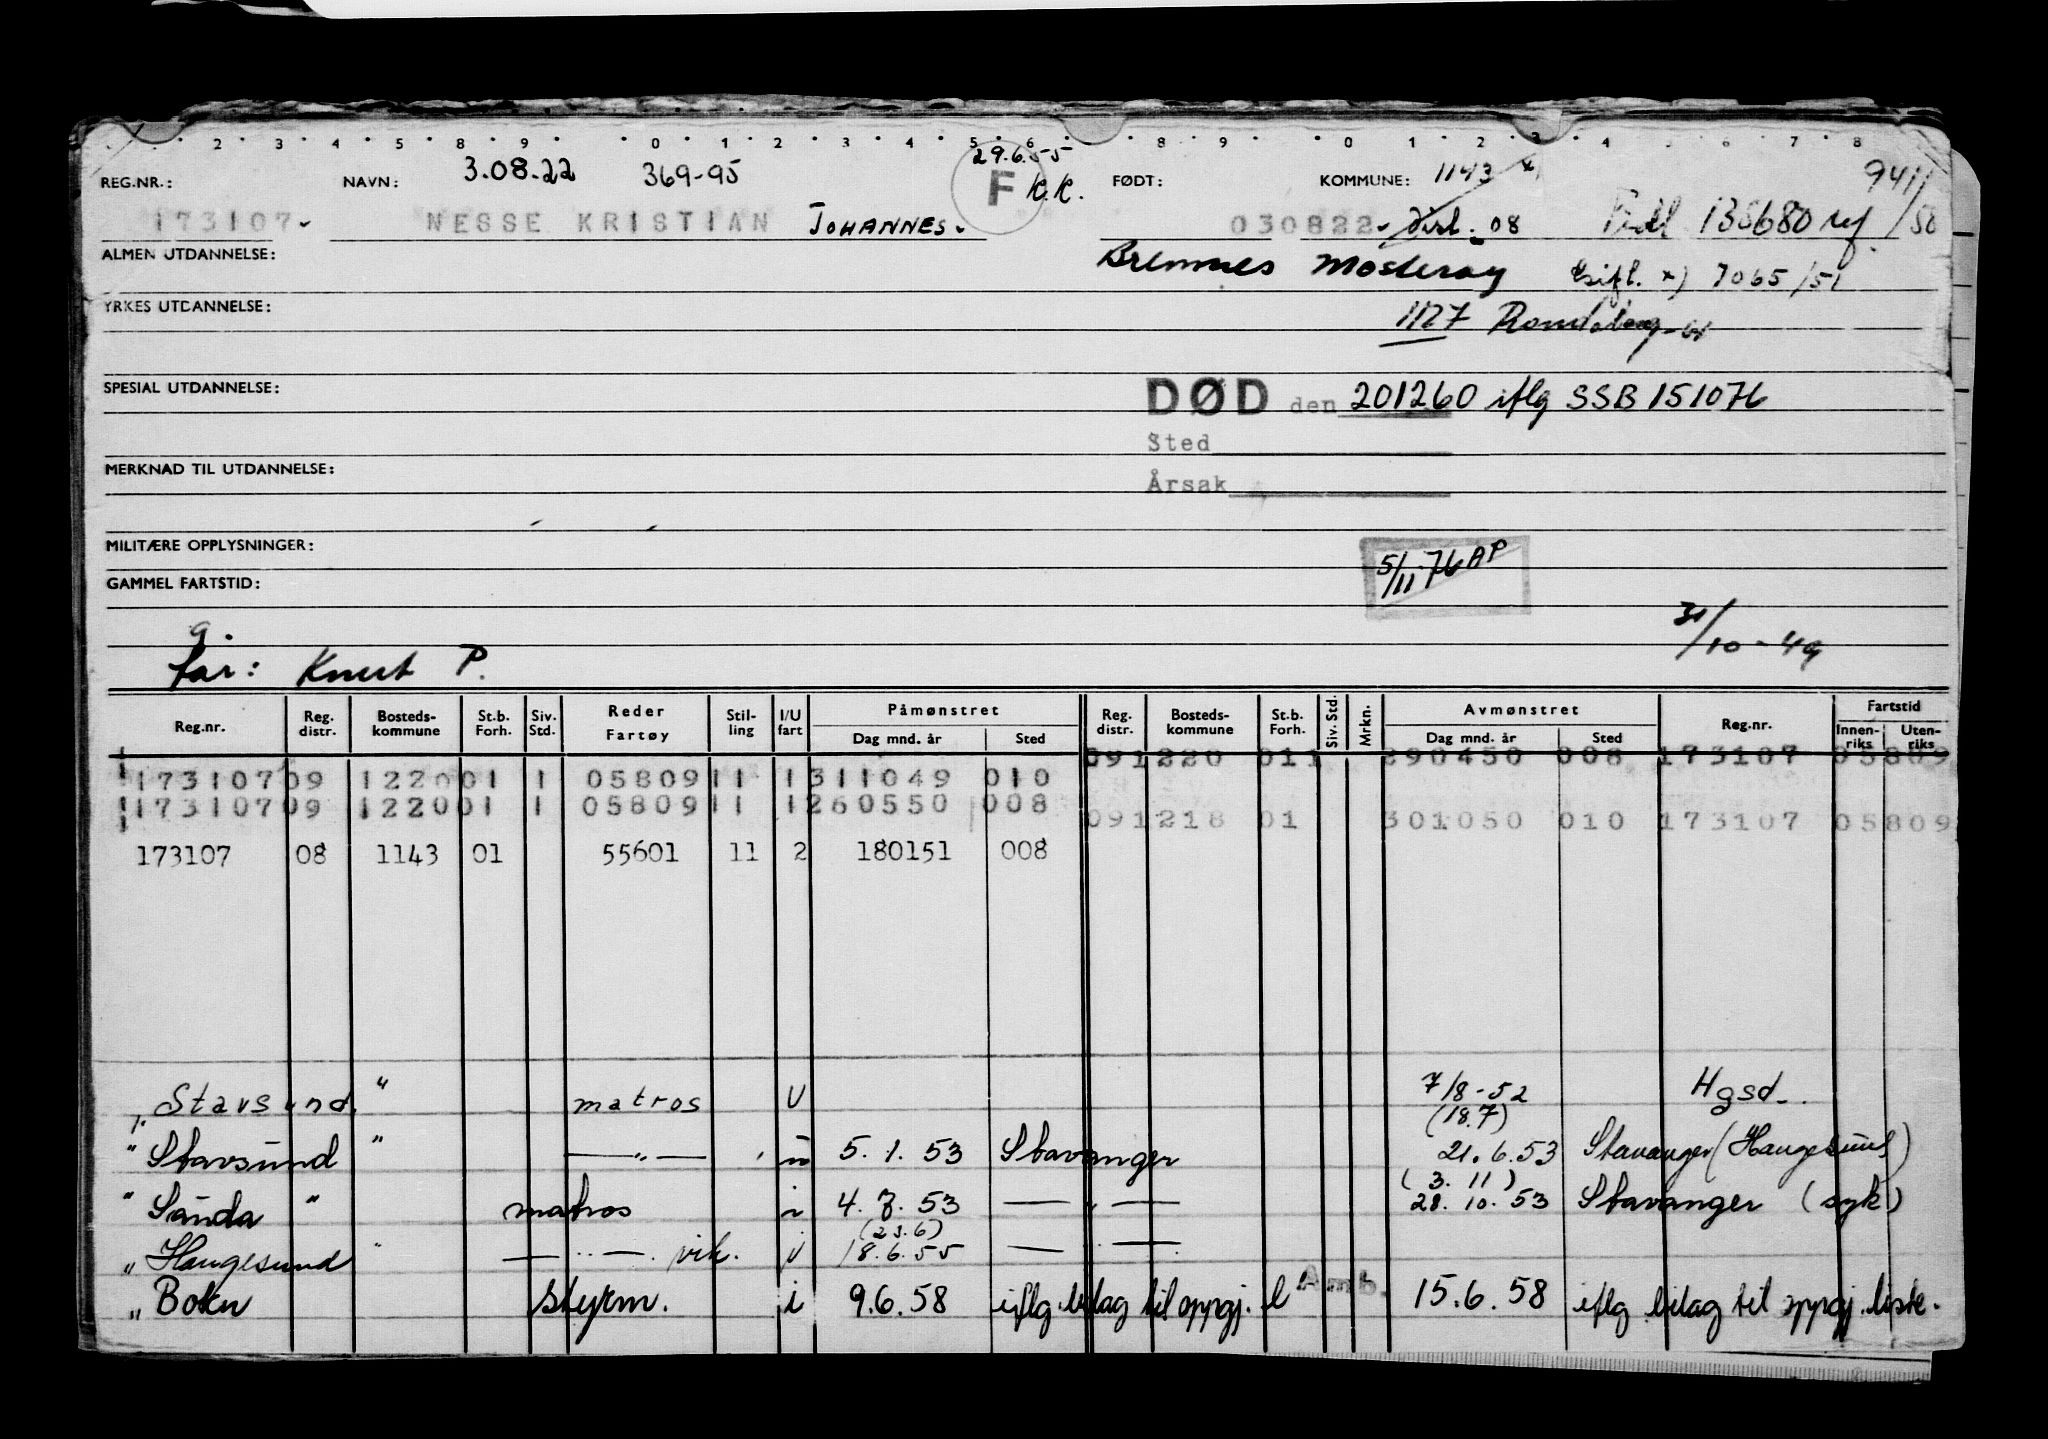 2 3 4 5 8 9 0 1 2 3 4 5 6 8 9 0 1 2 3 4 6 7 8
29.6.55
REG.NR.: NAVN: 3.08.22 369-95 F K.K. FØDT: KOMMUNE: 1143 x) 9411/50
173107- NESSE KRISTIAN JOHANNES. 030822- dist. 08 138680
ALMEN UTDANNELSE: Bremnes Mosterøy x) 7065/51
YRKES UTDANNELSE: 1127
SPESIAL UTDANNELSE: DØD den 201260 iflg SSB 151076
Sted
MERKNAD TIL UTDANNELSE:
Årsak
MILITÆRE OPPLYSNINGER: 5/11 76 AP
GAMMEL FARTSTID:
g. 31/10-49
far: Knut P.
Reg.nr. Reg. distr. Bosteds-kommune St.b. Forh. Siv. Std. Reder Fartøy Stil-ling I/U fart Påmønstret Dag mnd. år Sted Reg. distr. Bosteds-kommune St.b. Forh. Siv. Std. Mrkn. Avmønstret Dag mnd. år Sted Reg.nr. Fartstid Innen-riks Uten-riks
173107 09 1220 01 1 05809 11 1 311049 010 091220 011 290450 008 173107 05809
173107 09 1220 01 1 05809 11 1 260550 008 091218 01 301050 010 173107 05809
173107 08 1143 01 55601 11 2 180151 008
" Stavsund " matros U 7/8-52 Hgsd.
(18.7)
" Stavsund " —"— u 5.1.53 Stavanger 21.6.53 Stavanger (Haugesund)
(3.11)
" Sanda " matros i 4.7.53 —"— 28.10.53 Stavanger (syk)
(23.6)
" Haugesund " —"— vik. U 18.6.55 —"—
" Bokn styrm. i 9.6.58 iflg. bilag til oppgj. l Amb. 15.6.58 iflg bilag til oppgj. liste.